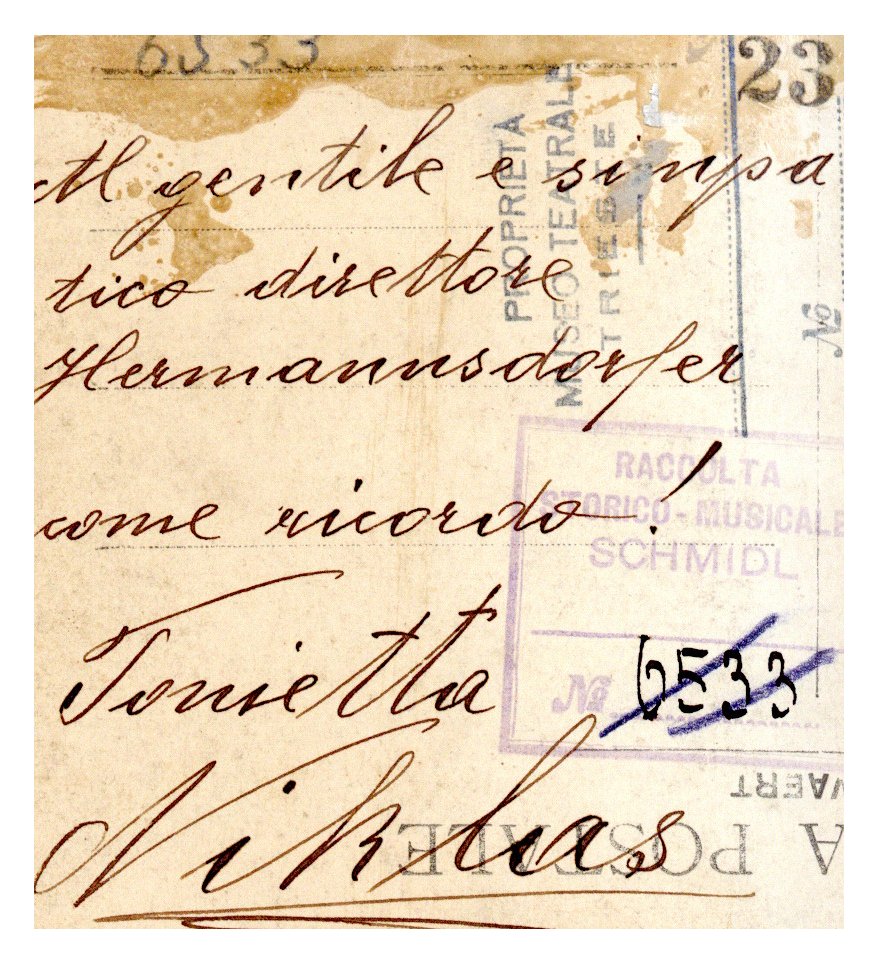 6533
23
Al gentile e simpa
tico direttore
Hermannsdorfer
come ricordo!
Tonietta
Niklas
PROPRIETÀ
MUSEO TEATRALE
TRIESTE
No
RACCOLTA
STORICO-MUSICALE
SCHMIDL
No 6533
VAERT
A POSTALE